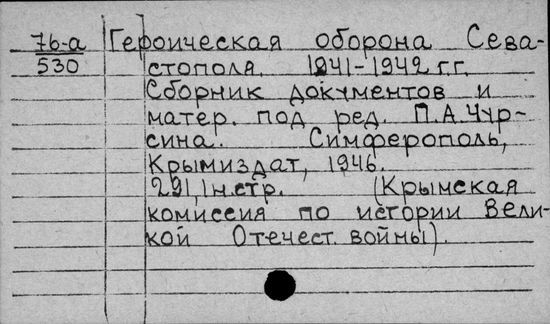 76-а Героическая оборона Сева-
530 стополя. 1941-1942 г.г.
Сборник документов и
матер. под ред. П.А.Чур-
сина. Симферополь,
Крымиздат, 1946.
291,1н.стр. (Крымская
комиссия по истории Вели-
кой Отечест. войны).